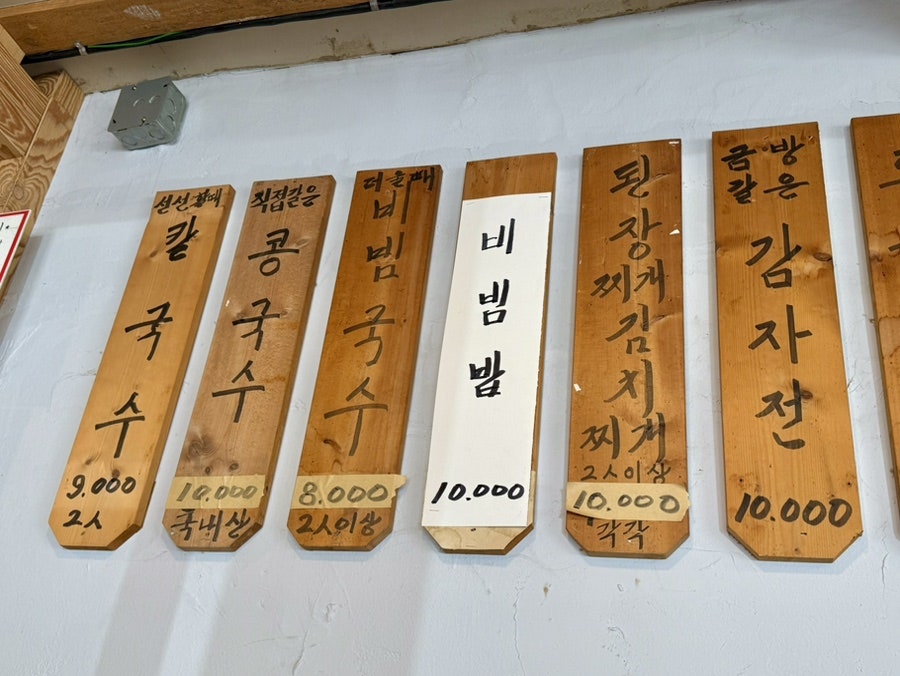 선선할때
칼국수
9.000
2人
직접갈은
콩국수
10.000
국내산
더울때
비빔국수
8.000
2人이상
비빔밥
10.000
된장찌개
김치찌개
2人이상
10.000
각각
금방
갈은
감자전
10.000